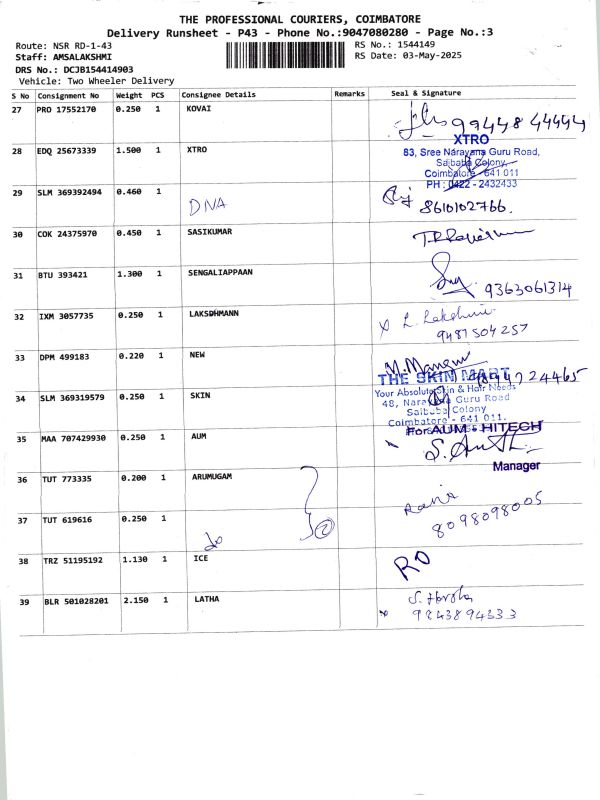 THE PROFESSIONAL COURIERS, COIMBATORE
Delivery Runsheet - P43 - Phone No.:9047080280 - Page No.:3
Route: NSR RD-1-43 RS No.: 1544149
Staff: AMSALAKSHMI RS Date: 03-May-2025
DRS No.: DCJB154414903
Vehicle: Two Wheeler Delivery
S No Consignment No Weight PCS Consignee Details Remarks Seal & Signature
27 PRO 17552170 0.250 1 KOVAI
99448 44444
28 EDQ 25673339 1.500 1 XTRO
XTRO
83, Sree Narayana Guru Road,
Saibaba Colony,
Coimbatore - 641 011
PH : 0422 - 2432433
29 SLM 369392494 0.460 1 DNA
8610102766.
30 COK 24375970 0.450 1 SASIKUMAR
31 BTU 393421 1.300 1 SENGALIAPPAAN
9363061314
32 IXM 3057735 0.250 1 LAKSDHMANN
L. Lakshmi
9487504257
33 DPM 499183 0.220 1 NEW
THE SKIN MART
Your Absolute Skin & Hair Needs
34 SLM 369319579 0.250 1 SKIN
48, Narayana Guru Road
Saibaba Colony
Coimbatore - 641 011.
35 MAA 707429930 0.250 1 AUM
For AUM - HITECH
Manager
36 TUT 773335 0.200 1 ARUMUGAM
Rani
8098098005
37 TUT 619616 0.250 1 do
2
38 TRZ 51195192 1.130 1 ICE
39 BLR 501028201 2.150 1 LATHA
9843894333